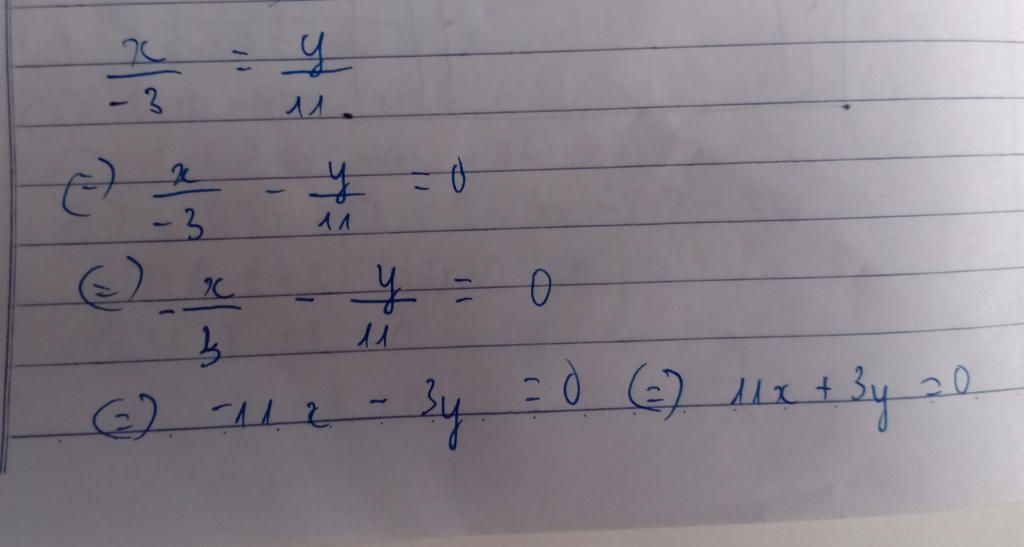 x/-3 = y/11.
(=) x/-3 - y/11 = 0
(=) -x/3 - y/11 = 0
(=) -11x - 3y = 0 (=) 11x + 3y = 0